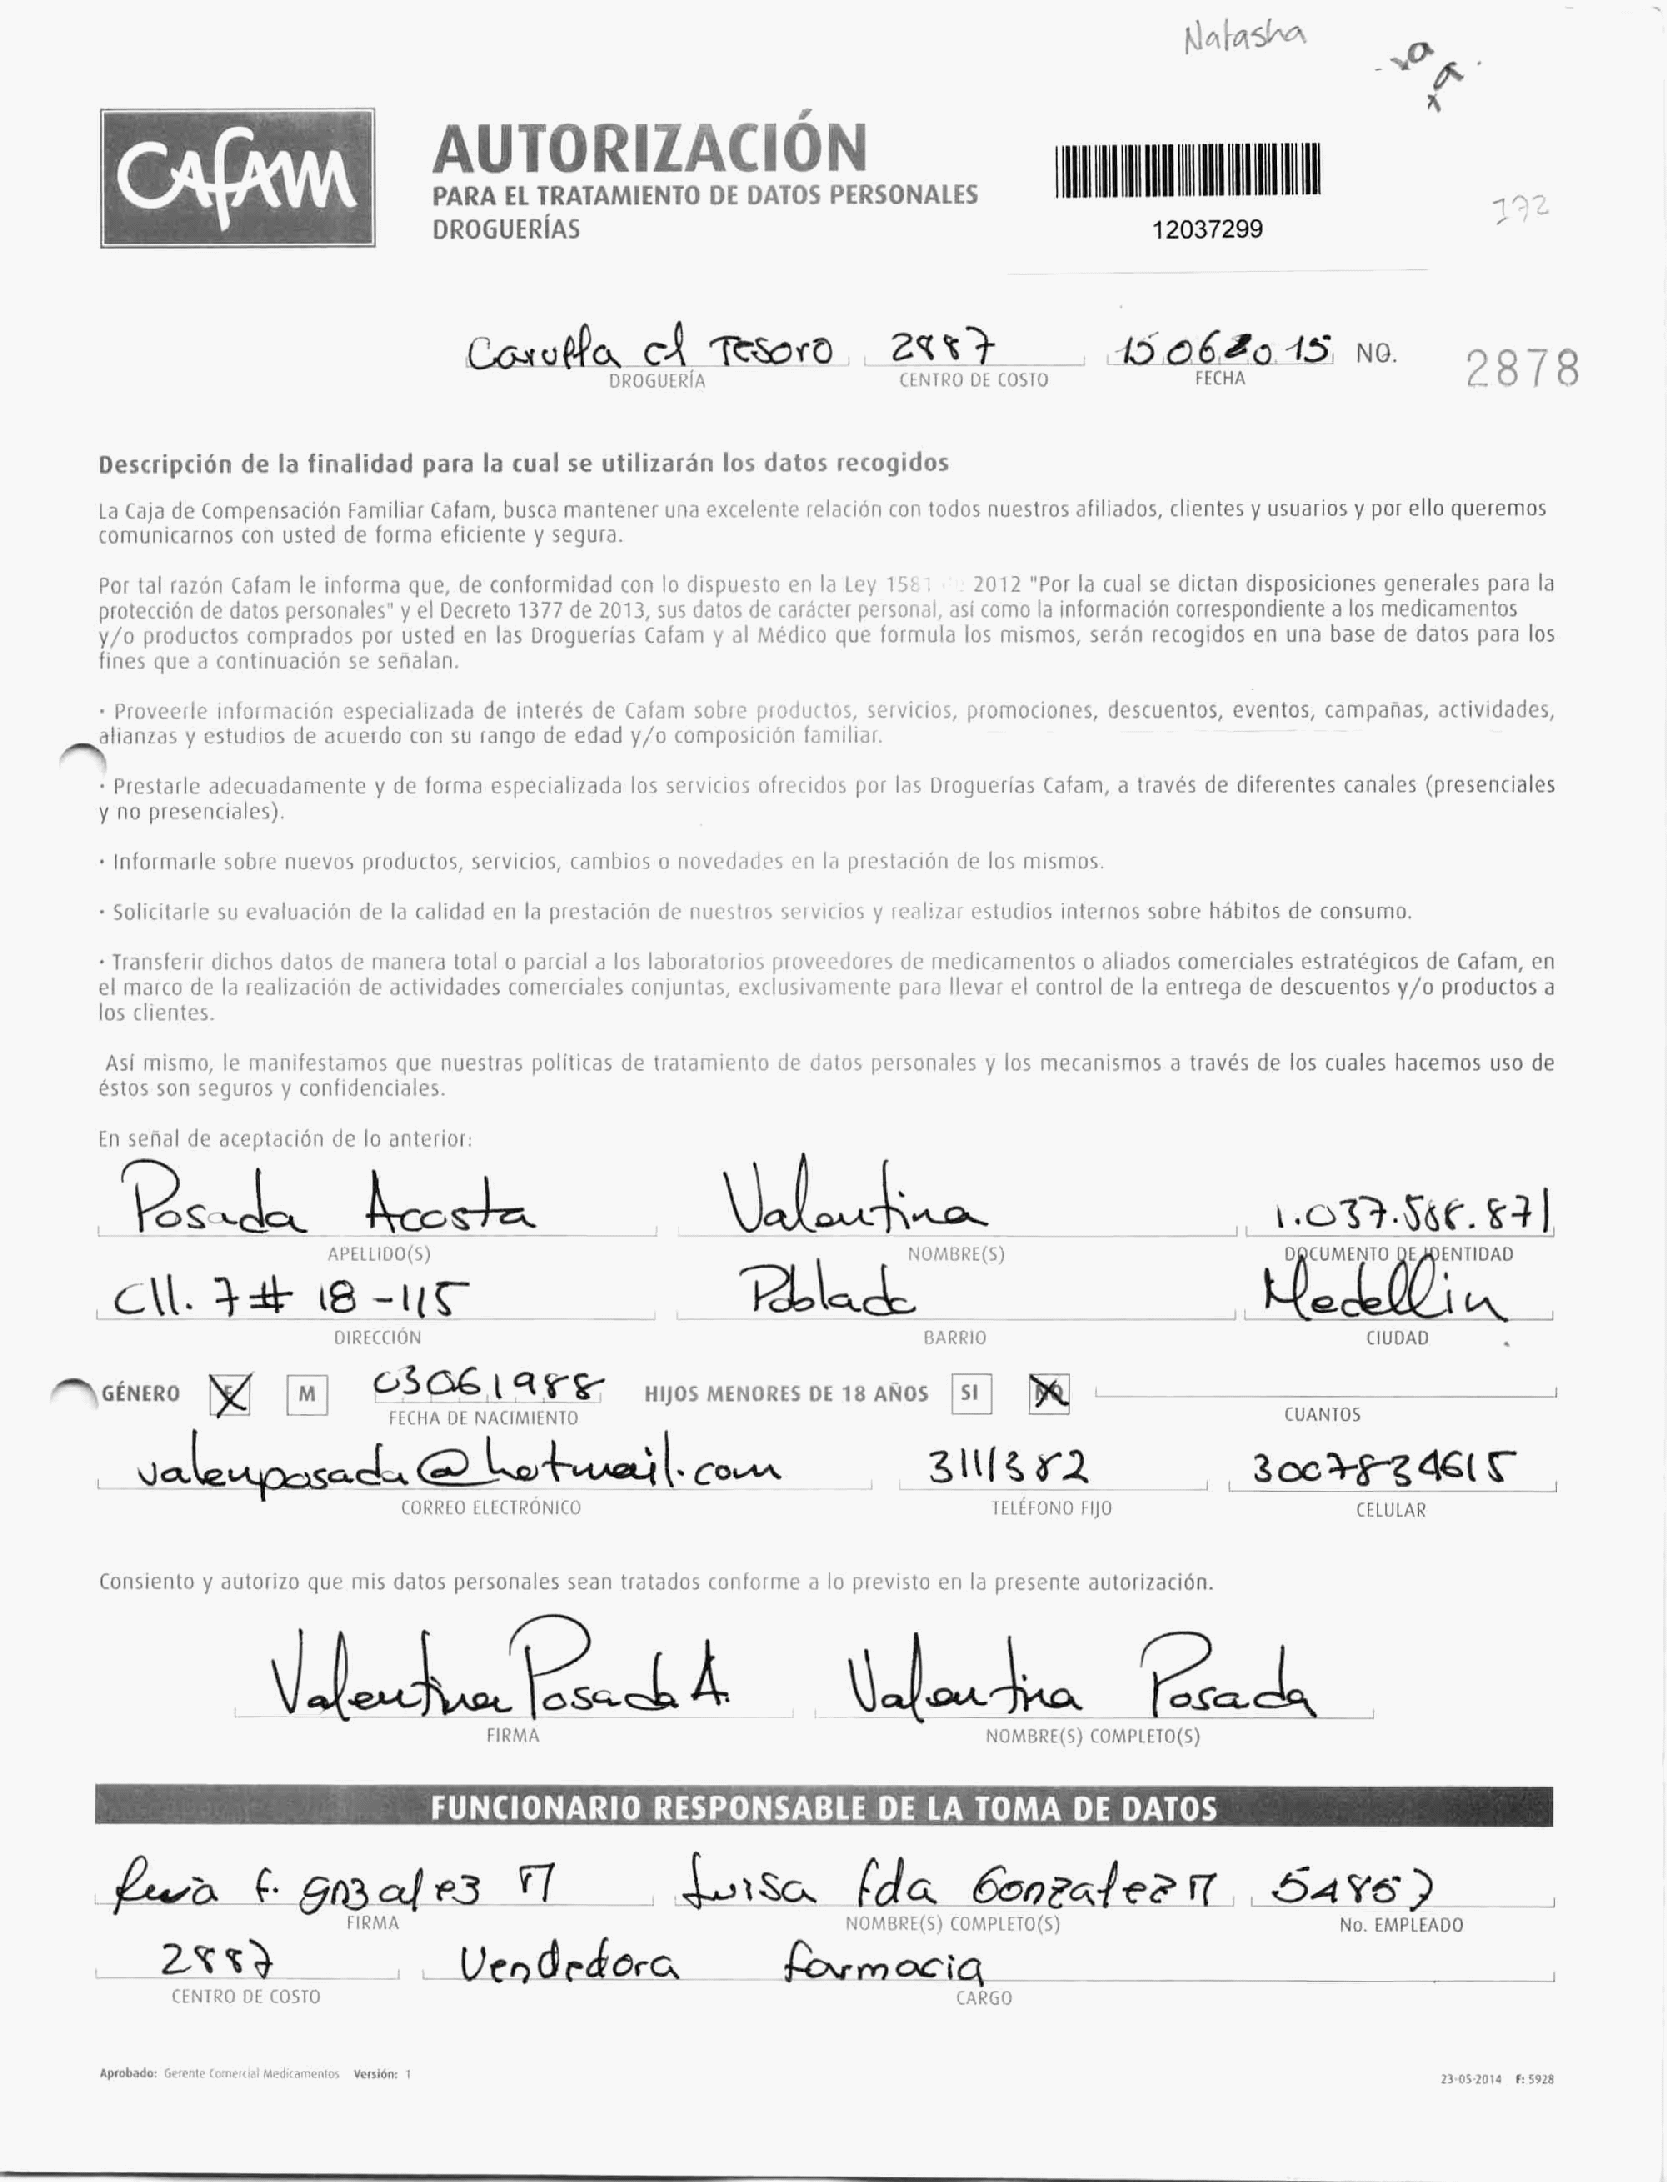 Natasha
Cafam
AUTORIZACIÓN
PARA EL TRATAMIENTO DE DATOS PERSONALES
DROGUERÍAS
12037299
172
Carulla el Tesoro 2887 15062015 NO. 2878
DROGUERÍA CENTRO DE COSTO FECHA
Descripción de la finalidad para la cual se utilizarán los datos recogidos
La Caja de Compensación Familiar Cafam, busca mantener una excelente relación con todos nuestros afiliados, clientes y usuarios y por ello queremos
comunicarnos con usted de forma eficiente y segura.
Por tal razón Cafam le informa que, de conformidad con lo dispuesto en la Ley 1581 2012 "Por la cual se dictan disposiciones generales para la
protección de datos personales" y el Decreto 1377 de 2013, sus datos de carácter personal, así como la información correspondiente a los medicamentos
y/o productos comprados por usted en las Droguerías Cafam y al Médico que formula los mismos, serán recogidos en una base de datos para los
fines que a continuación se señalan.
· Proveerle información especializada de interés de Cafam sobre productos, servicios, promociones, descuentos, eventos, campañas, actividades,
alianzas y estudios de acuerdo con su rango de edad y/o composición familiar.
· Prestarle adecuadamente y de forma especializada los servicios ofrecidos por las Droguerías Cafam, a través de diferentes canales (presenciales
y no presenciales).
· Informarle sobre nuevos productos, servicios, cambios o novedades en la prestación de los mismos.
· Solicitarle su evaluación de la calidad en la prestación de nuestros servicios y realizar estudios internos sobre hábitos de consumo.
· Transferir dichos datos de manera total o parcial a los laboratorios proveedores de medicamentos o aliados comerciales estratégicos de Cafam, en
el marco de la realización de actividades comerciales conjuntas, exclusivamente para llevar el control de la entrega de descuentos y/o productos a
los clientes.
Así mismo, le manifestamos que nuestras políticas de tratamiento de datos personales y los mecanismos a través de los cuales hacemos uso de
éstos son seguros y confidenciales.
En señal de aceptación de lo anterior:
Posada Acosta Valentina
APELLIDO(S) NOMBRE(S) DOCUMENTO DE IDENTIDAD
Cll. 7 # 18-115 Poblado Medellin
DIRECCIÓN BARRIO CIUDAD
GÉNERO F M 03061988 HIJOS MENORES DE 18 AÑOS SI NO
FECHA DE NACIMIENTO CUANTOS
valenposada@hotmail.com 3111382 3007834615
CORREO ELECTRÓNICO TELÉFONO FIJO CELULAR
Consiento y autorizo que mis datos personales sean tratados conforme a lo previsto en la presente autorización.
Valentina Posada A. Valentina Posada
FIRMA NOMBRE(S) COMPLETO(S)
FUNCIONARIO RESPONSABLE DE LA TOMA DE DATOS
f. gnzalez M Luisa fda Gonzalez M
FIRMA NOMBRE(S) COMPLETO(S) No. EMPLEADO
2887 Vendedora farmacia
CENTRO DE COSTO CARGO
Aprobado: Gerente Comercial Medicamentos Versión: 1
23-05-2014 F: 5928